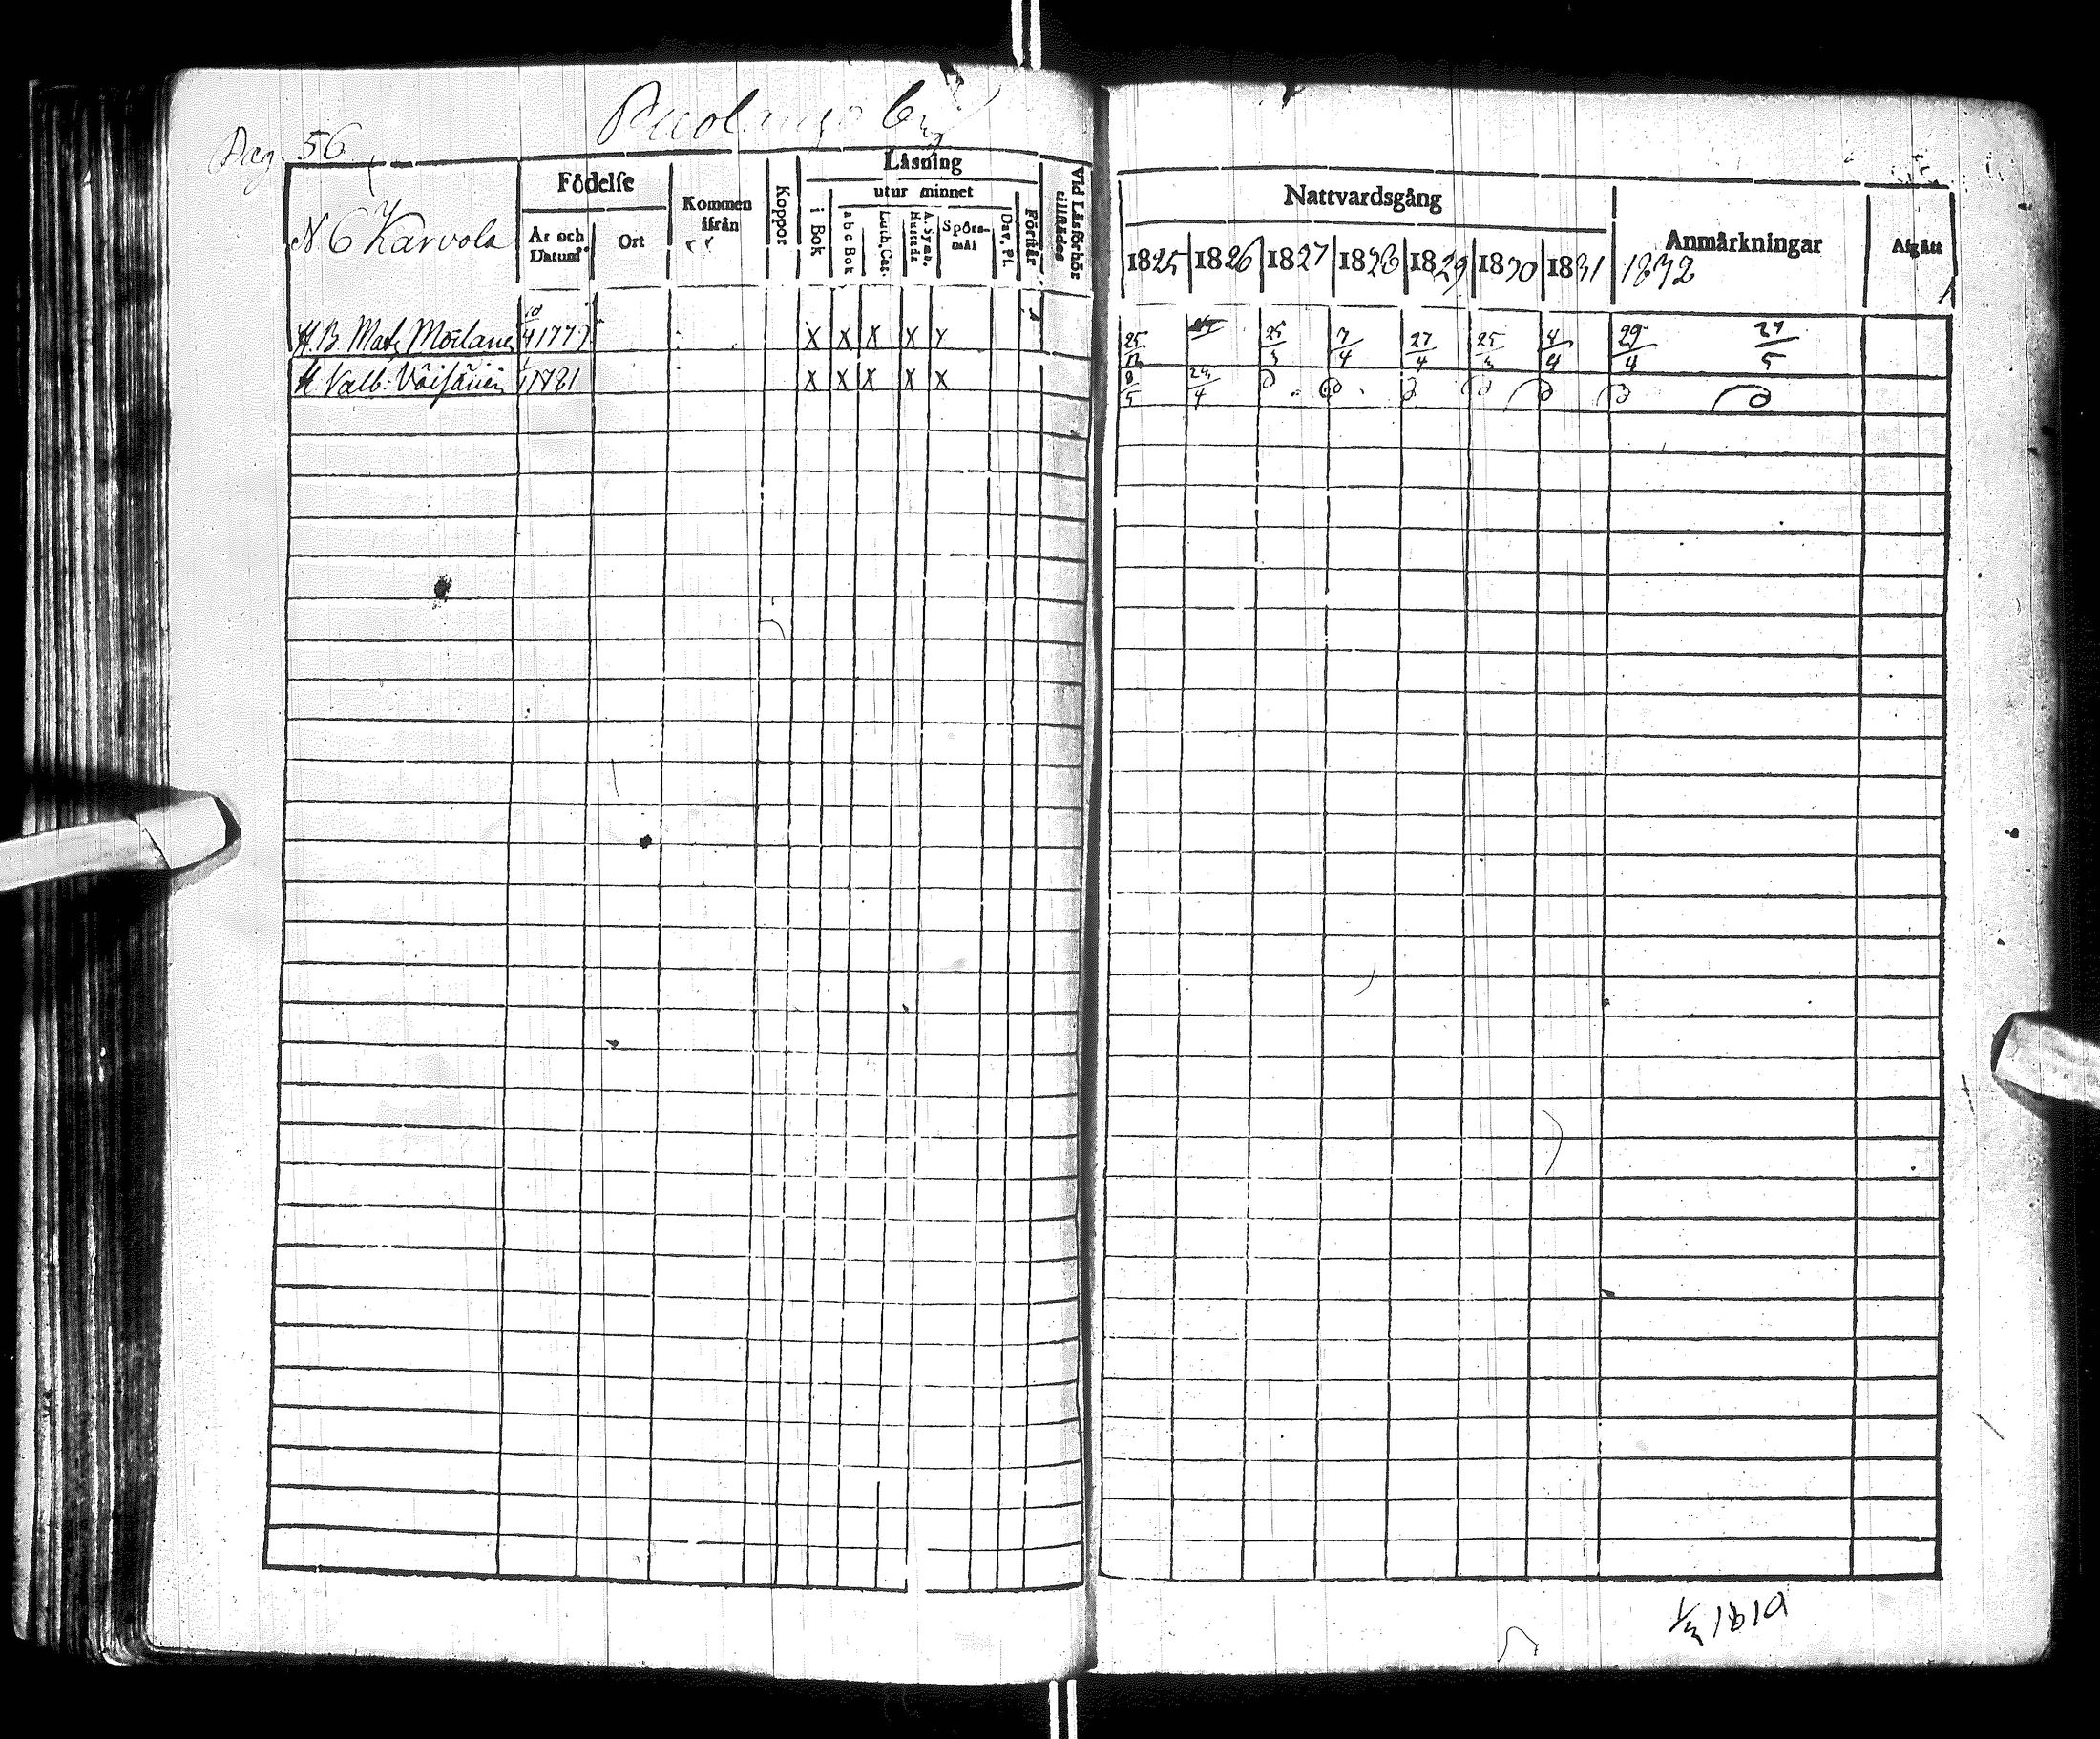 Pag. 56
Puolango by
N 6 Karvola
Födelse
År och Datum
Ort
Kommen ifrån
Koppor
Läsning
i Bok
utur minnet
a b c Bok
Luth. Cat.
A. Symb. Hustafla
Spörs-mål
Dav. Ps.
Förstår
Vid Läsförhör tillstädes
Nattvardsgång
1825 1826 1827 1828 1829 1830 1831
Anmärkningar
1832
Afgått
H. B. Mats Moilanen 10/4 1779 X X X X X 25/12 25/3 7/4 27/4 25/3 4/4 29/4 27/5
H Valb: Väisänen 1/1 1781 X X X X X 8/5 24/4
1/3 1819